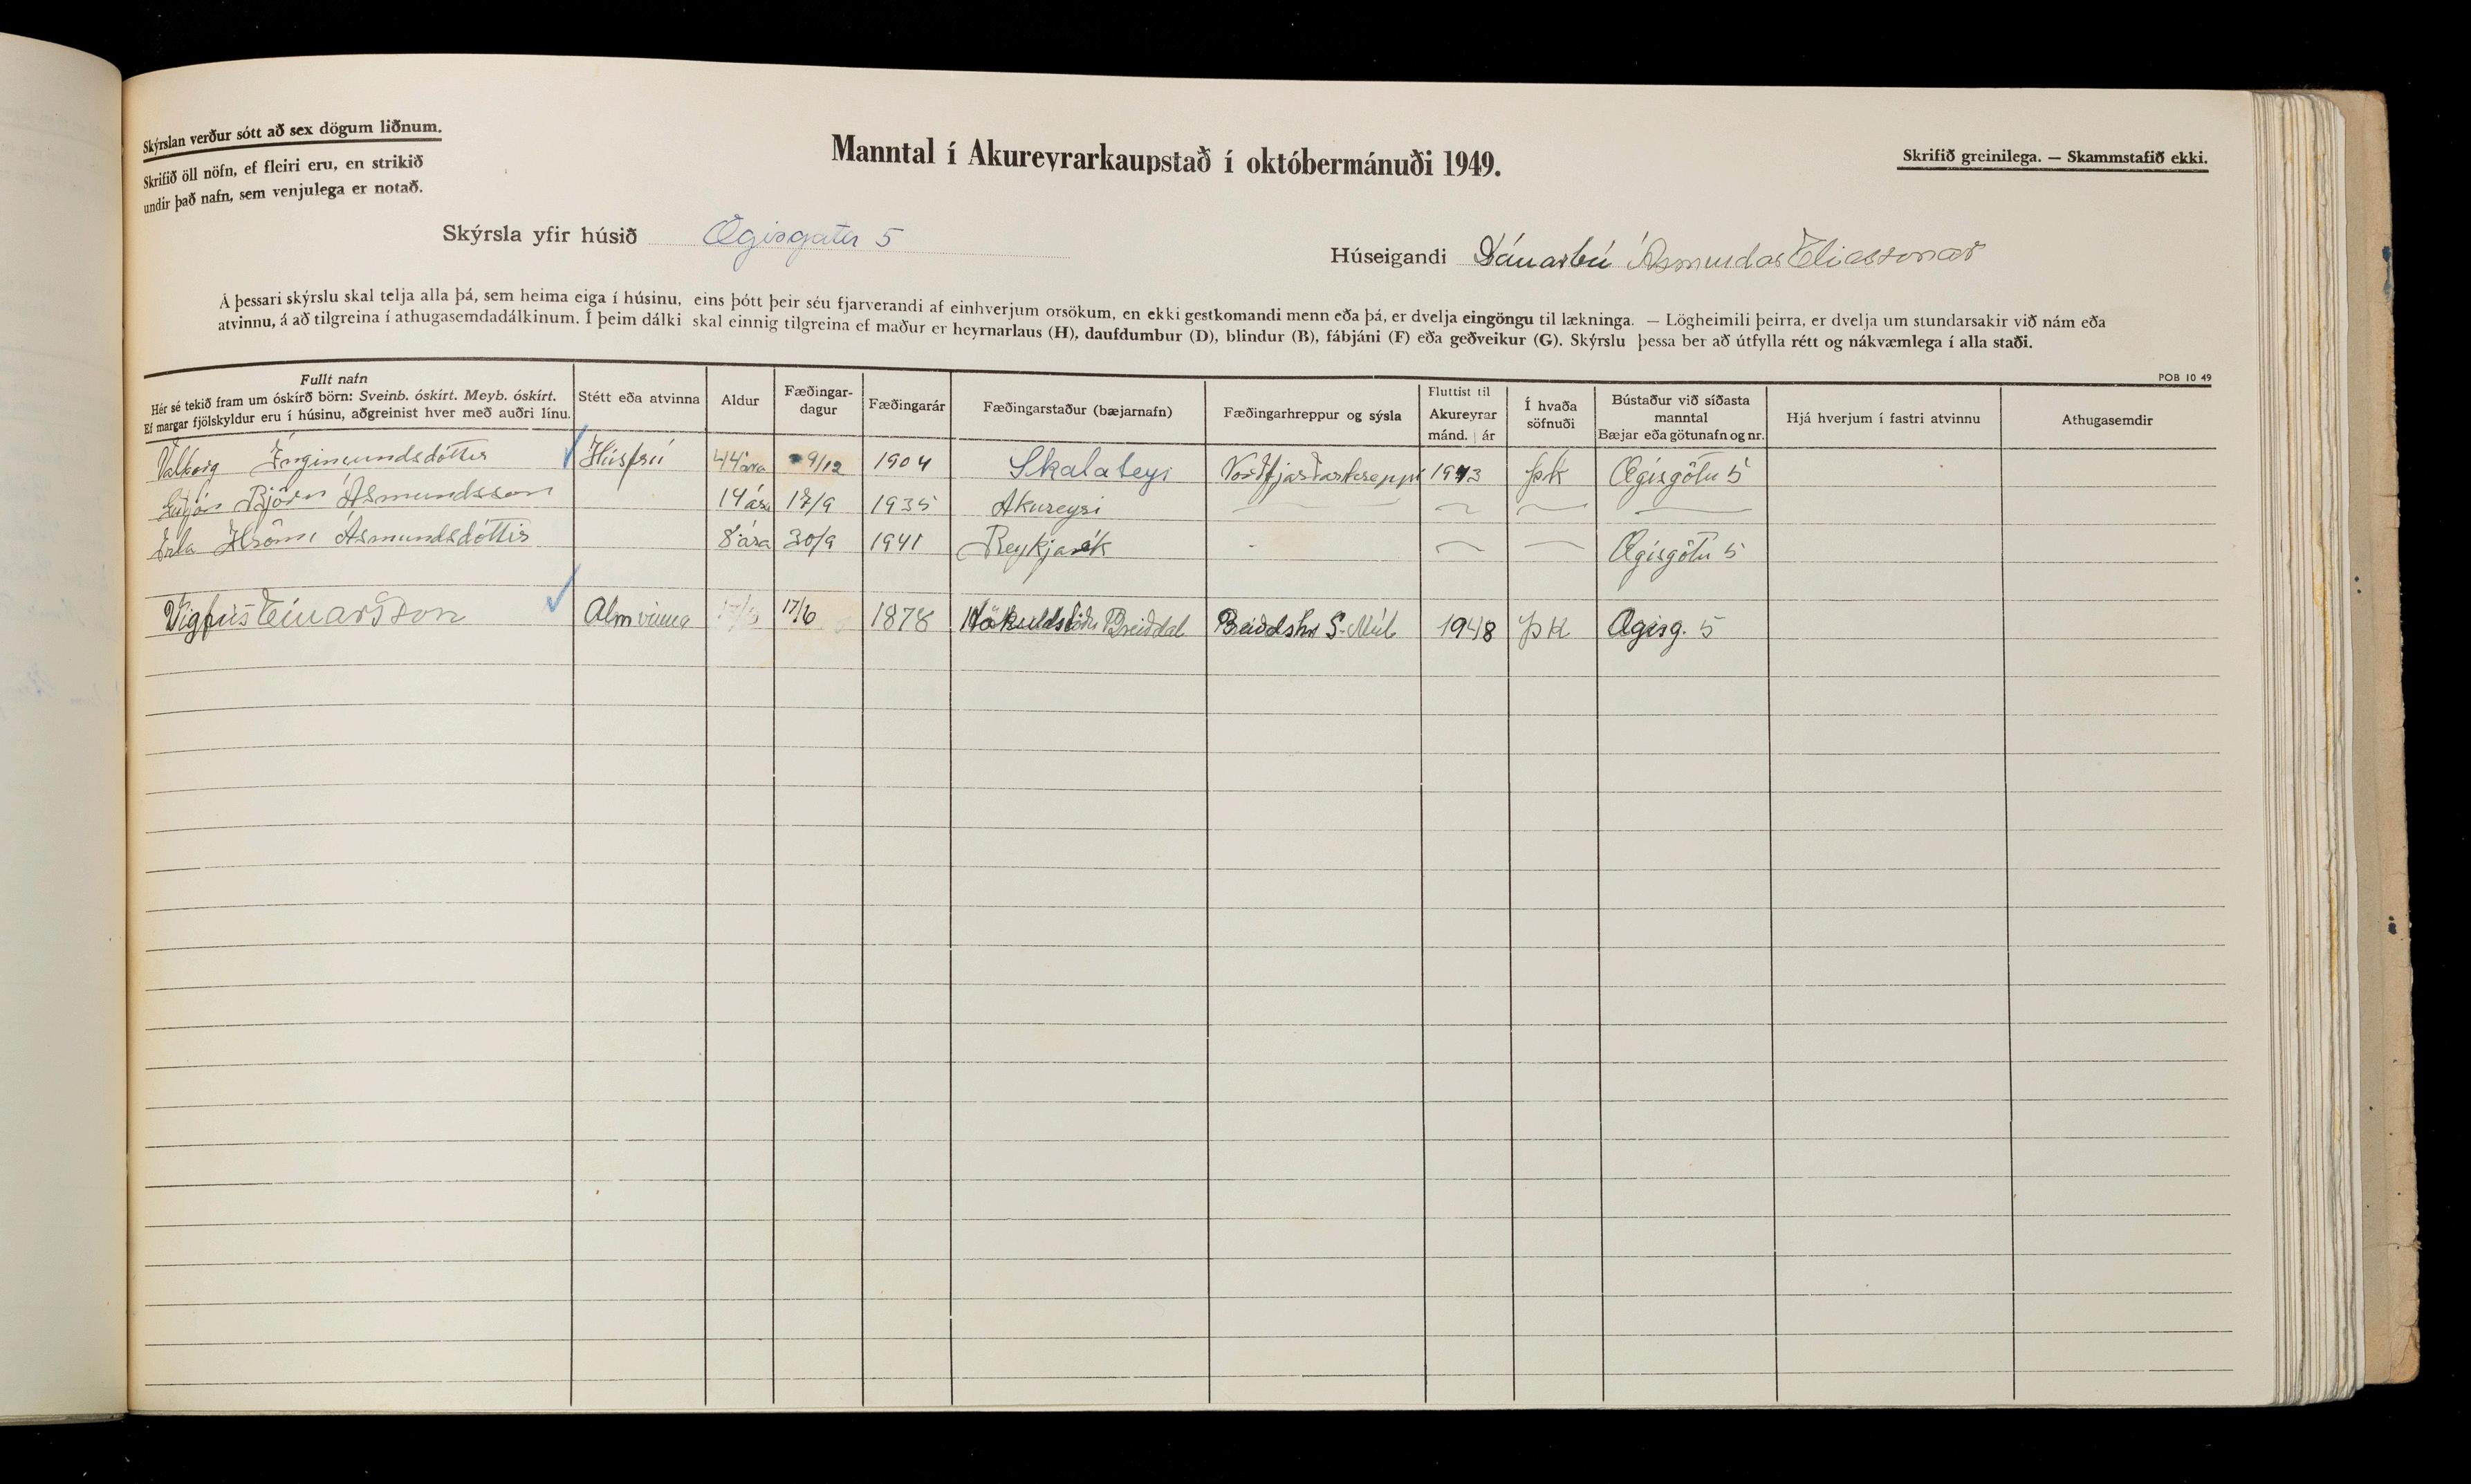 Skýrslan verður sótt að sex dögum liðnum.
Skrifið öll nöfn, ef fleiri eru, en strikið
undir það nafn, sem venjulega er notað.
Manntal í Akureyrarkaupstað í októbermánuði 1949.
Skrifið greinilega. — Skammstafið ekki.
Skýrsla yfir húsið Ægisgata 5
Húseigandi Dánarbú Ásmundar Elíassonar
Á þessari skýrslu skal telja alla þá, sem heima eiga í húsinu, eins þótt þeir séu fjarverandi af einhverjum orsökum, en ekki gestkomandi menn eða þá, er dvelja eingöngu til lækninga. — Lögheimili þeirra, er dvelja um stundarsakir við nám eða
atvinnu, á að tilgreina í athugasemdadálkinum. Í þeim dálki skal einnig tilgreina ef maður er heyrnarlaus (H), daufdumbur (D), blindur (B), fábjáni (F) eða geðveikur (G). Skýrslu þessa ber að útfylla rétt og nákvæmlega í alla staði.
POB 10 49
Fullt nafn
Hér sé tekið fram um óskírð börn: Sveinb. óskírt. Meyb. óskírt.
Ef margar fjölskyldur eru í húsinu, aðgreinist hver með auðri línu.
Stétt eða atvinna
Aldur
Fæðingar-
dagur
Fæðingarár
Fæðingarstaður (bæjarnafn)
Fæðingarhreppur og sýsla
Fluttist til
Akureyrar
mánd. | ár
Í hvaða
söfnuði
Bústaður við síðasta
manntal
Bæjar eða götunafn og nr.
Hjá hverjum í fastri atvinnu
Athugasemdir
Valborg Ingimundsdóttir Húsfrú 44 ára 9/12 1904 Skalateyi Norðfjarðarhreppi 1943 þk Ægisgötu 5
Björn Ásmundsson 14 ára 17/9 1935 Akureyri
Erla Hrönn Ásmundsdóttir 8 ára 30/9 1941 Reykjavík - Ægisgötu 5
Vigfús Einarsson Alm vinna 17/6 1878 Höskuldstöðu Breiddal Breiddshr S-Múl 1948 þk Ægisg. 5